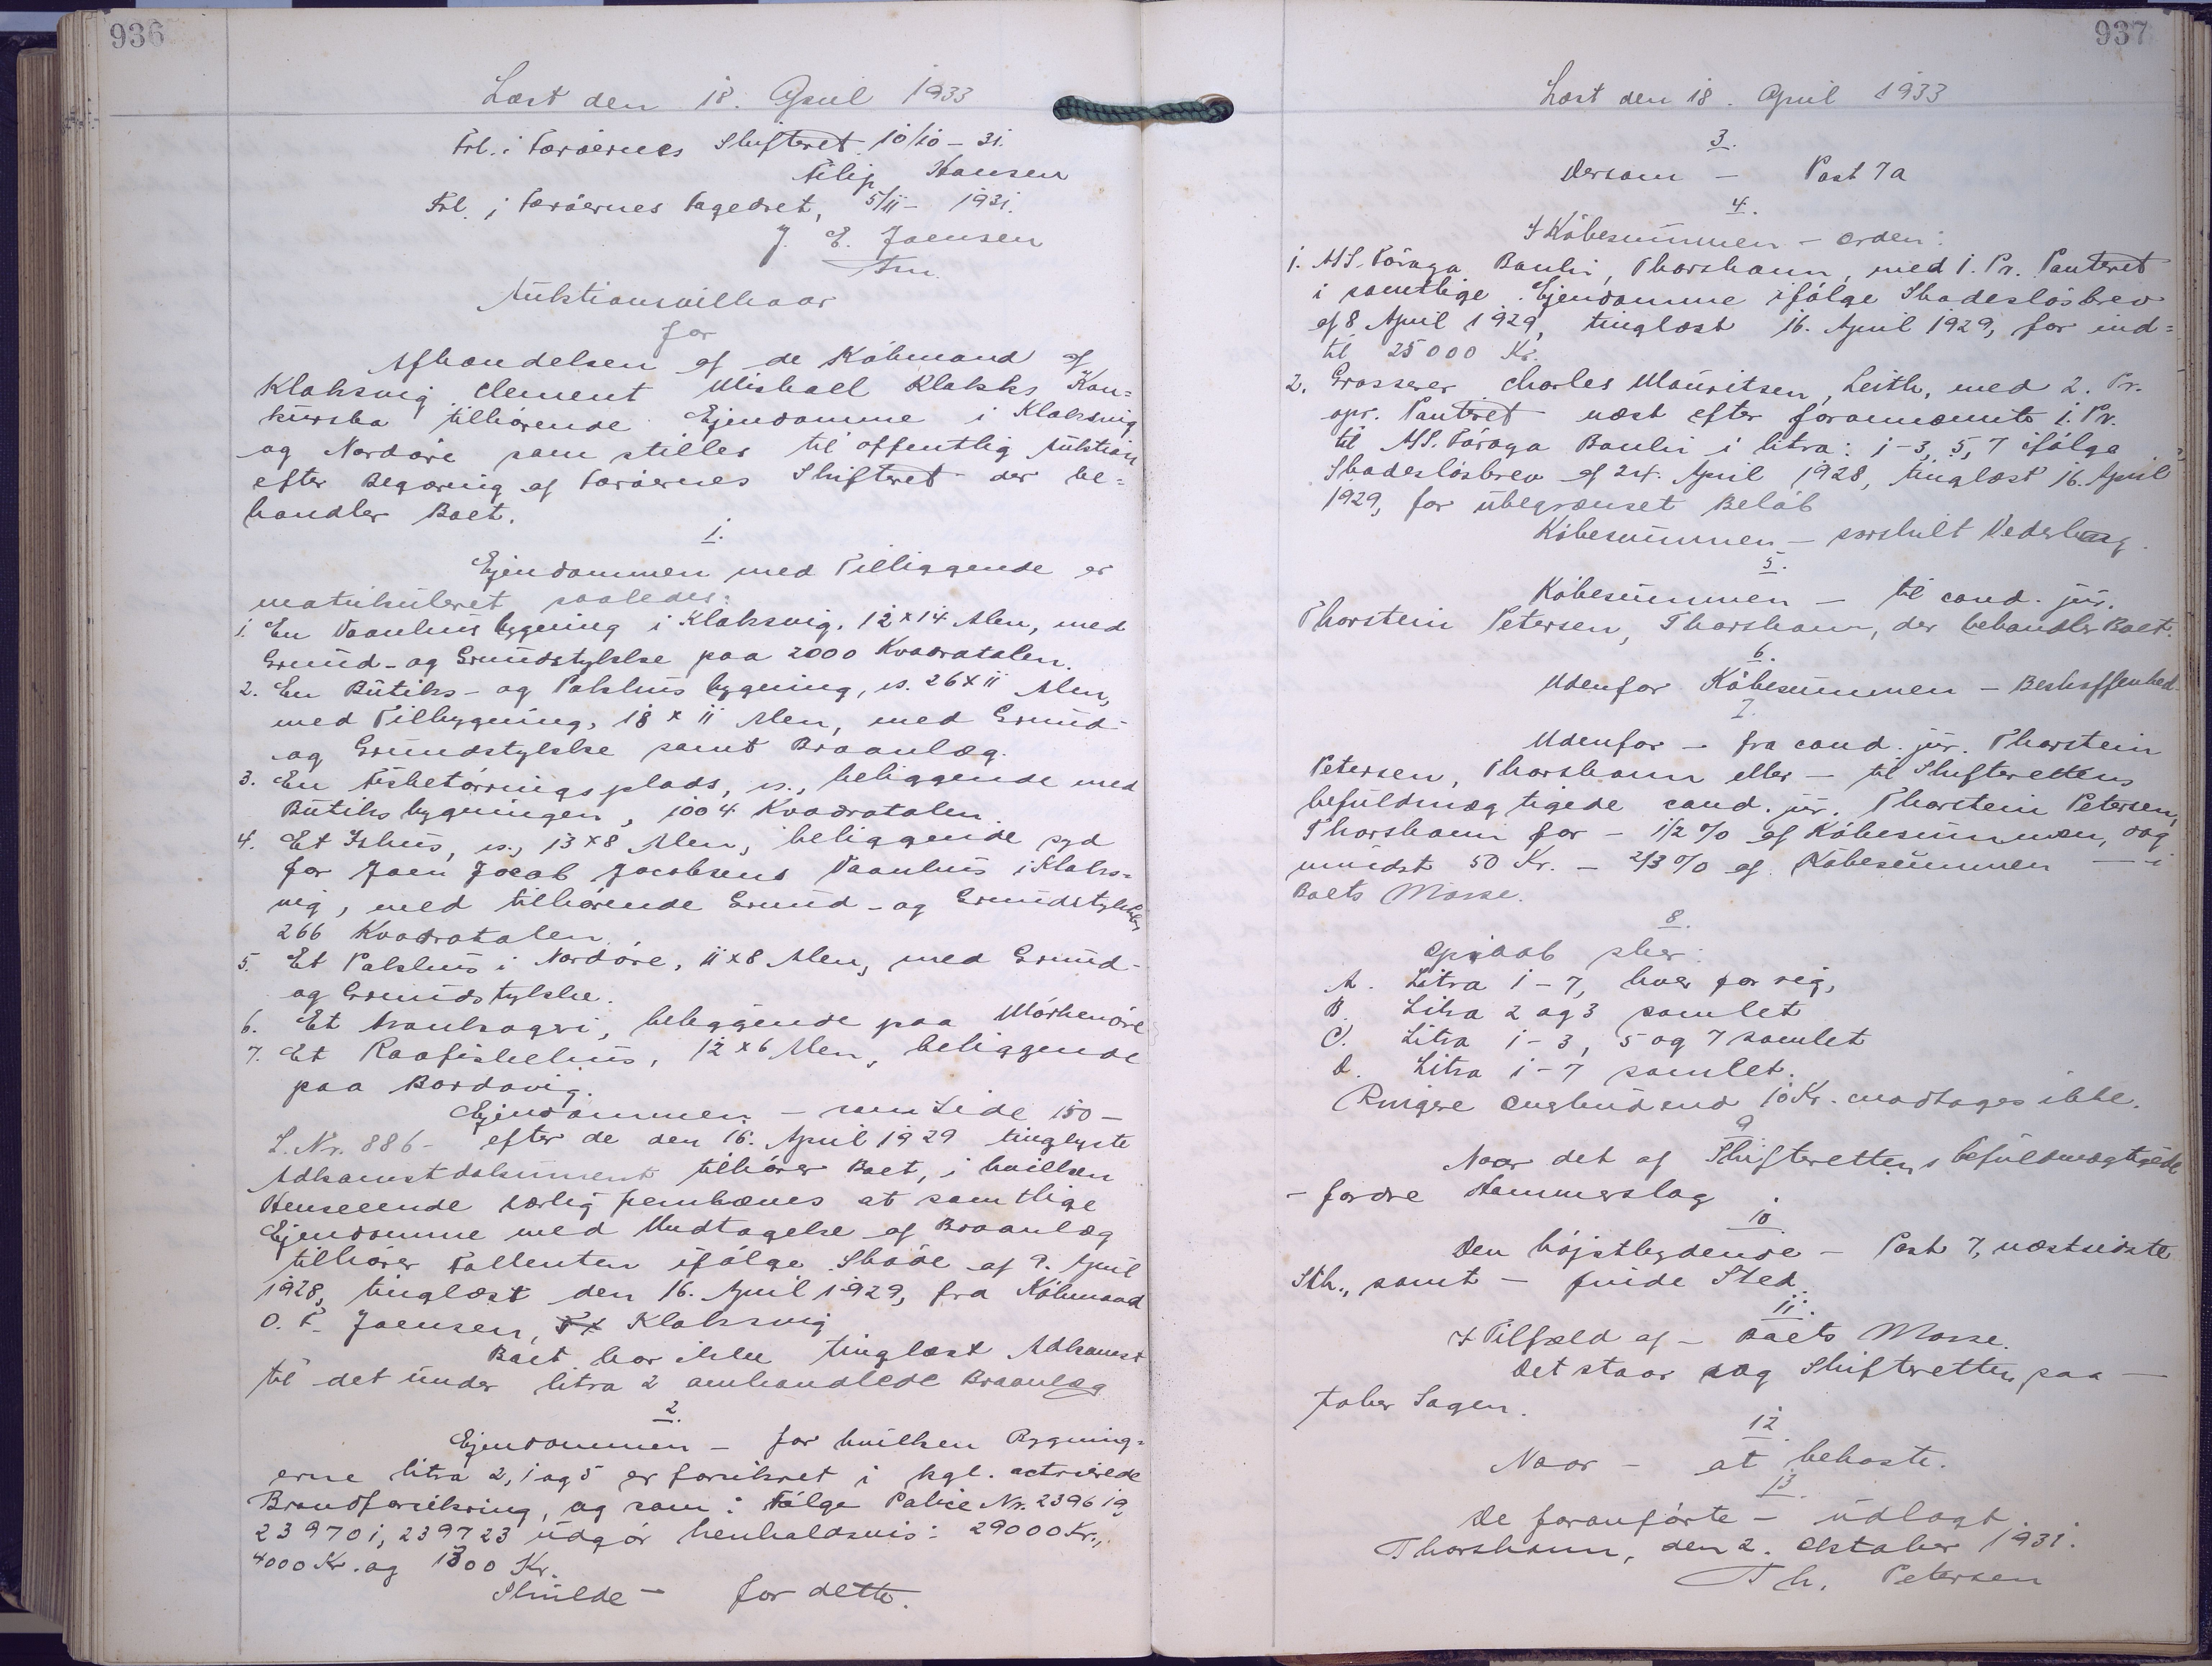 936
Læst den 18. April 1933
Frl. i Færöernes Skifteret 10/10 - 31.
Filip Hansen
Frl. i Færöernes Fogedret, 5/11 - 1931.
J. E. Joensen
Fm.
Auktionsvilkaar
for
Afhændelsen af de Köbmand af
Klaksvig Clement Mishael Klakks Kon=
kursbo tilhørende Ejendomme i Klaksvig
og Nordöre som stilles til offentlig Auktion
efter Begæring af Færöernes Skifteret der be=
handler Boet.
1.
Ejendommen med Tilliggende er
matrikuleret saaledes:
1. En Vaanhusbygning i Klaksvig, 12 x 14 Alen, med
Grund- og Grundstykke paa 2000 Kvadratalen.
2. En Butiks- og Pakhusbygning, is. 26 x 11 Alen,
med Tilbygning, 18 x 11 Alen, med Grund-
og Grundstykke samt Braanlæg.
3. En Fisketörringsplads, is., beliggende med
Butiksbygningen, 1004 Kvadratalen.
4. Et Ishus, is., 13 x 8 Alen, beliggende syd
for Joen Jocab Jacobsens Vaanhus i Klaks=
vig, med tilhørende Grund- og Grundstykke,
266 Kvadratalen.
5. Et Pakhus i Nordöre, 11 x 8 Alen, med Grund-
og Grundstykke.
6. Et Trankogeri, beliggende paa Mörkenöre
7. Et Raafiskehus, 12 x 6 Alen, beliggende
paa Bordovig.
Ejendommen - som Side 150 -
L. Nr. 886 - efter de den 16. April 1929 tinglyste
Adkomstdokument tilhører Boet, i hvilken
Henseende særlig fremhæves at samtlige
Ejendomme med Undtagelse af Braanlæg
tilhører Fallenten ifölge Sköde af 9. April
1928, tinglæst den 16. April 1929, fra Köbmand
O. F. Joensen, Klaksvig
Boet har ikke tinglæst Adkomst
til det under litra 2 omhandlede Braanlæg
2.
Ejendommen - for hvilken Bygning=
erne litra 2, 1 og 5 er forsikret i kgl. octroierede
Brandforsikring, og som i Fölge Police Nr. 239619
239701, 239723 udgör henholdsvis: 29000 Kr.,
4000 Kr. og 1300 Kr.
Skulde - for dette.
937
Læst den 18. April 1933
3.
Dersom - Post 7a
4.
I Köbesummen - orden:
1. A/S. Föroya Banki, Thorshavn, med 1. Pr. Panteret
i samtlige Ejendomme ifölge Skadeslösbrev
af 8 April 1929, tinglæst 16. April 1929, for ind=
til 25000 Kr.
2. Grosserer Charles Mauritsen, Leith, med 2. Pr.
opr. Panteret næst efter forannævnte 1. Pr.
til A/S. Föroya Banki i litra: 1-3, 5, 7 ifölge
Skadeslösbrev af 24. April 1928, tinglæst 16. April
1929, for ubegrænset Belöb
Köbesummen - særskilt Vederlag.
5.
Köbesummen - til cand. jur.
Thorstein Petersen, Thorshavn, der behandler Boet.
6.
Udenfor Köbesummen - Beskaffenhed
7.
Udenfor - fra cand. jur. Thorstein
Petersen, Thorshavn eller - til Skifterettens
befuldmægtigede cand. jur. Thorstein Petersen,
Thorshavn for - 1/2 % af Köbesummen, dog
mindst 50 Kr. - 2/3 % af Köbesummen - i
Boets Masse.
8.
Opraab sker:
A. Litra 1-7, hver for sig,
B. Litra 2 og 3 samlet
C. Litra 1-3, 5 og 7 samlet
D. Litra 1-7 samlet.
Ringere Overbud end 10 Kr. modtages ikke.
9
Naar det af Skifterettens befuldmægtigede
- fordre Hammerslag.
10
Den höjstbydende - Post 7, næstsidste
Stk., samt - finde Sted.
11.
I Tilfæld af - Boets Masse.
Det staar og Skifteretten paa -
taber Sagen.
12.
Naar - at bekoste.
13.
De foranförte - udlagt.
Thorshavn, den 2. Oktober 1931.
Th. Petersen